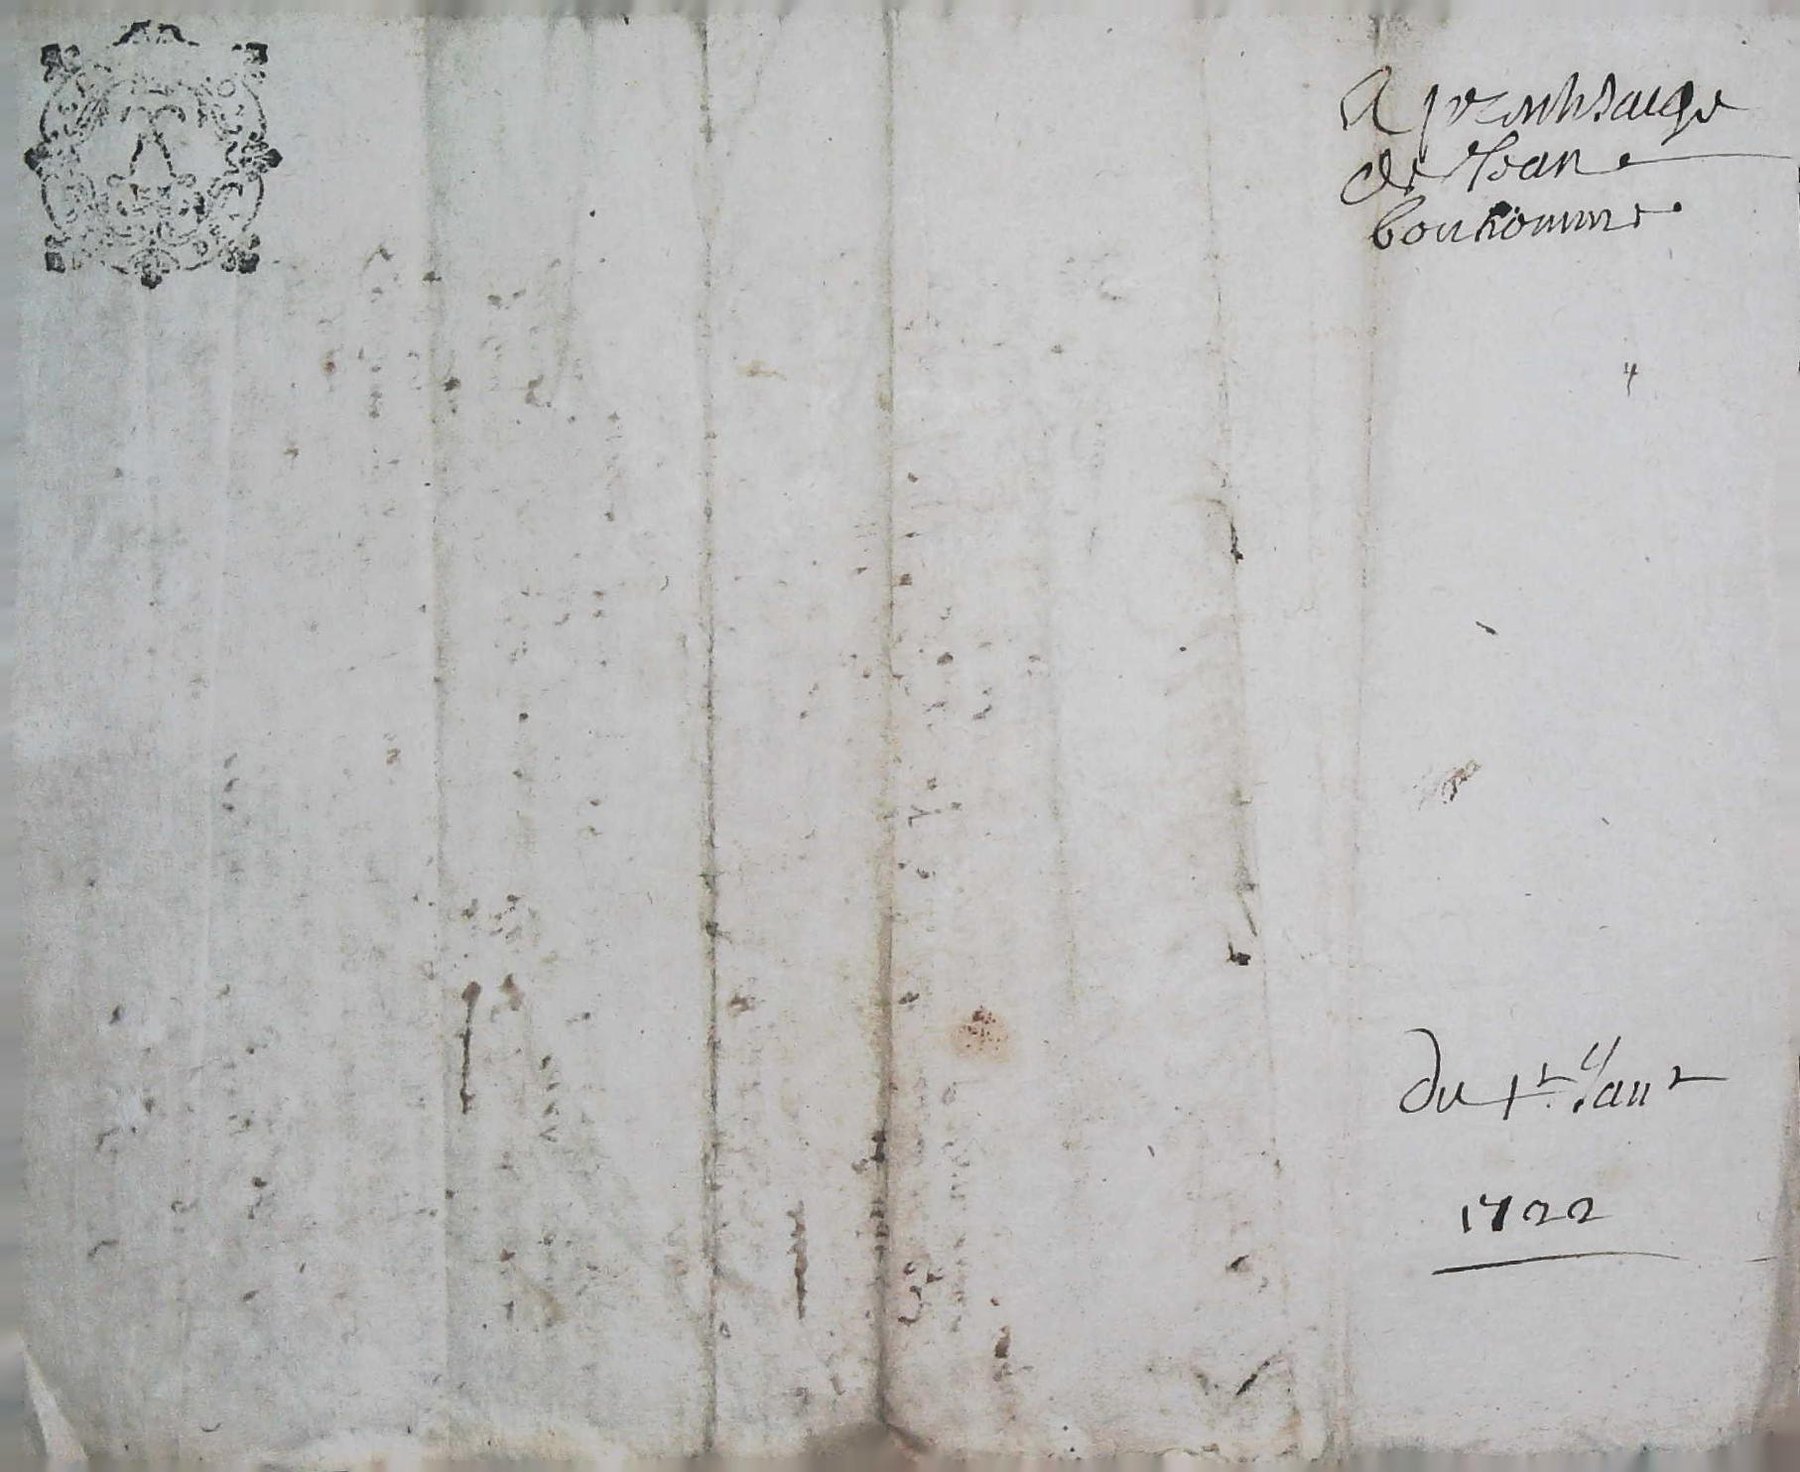 Aprenthisaige
de Jean
bonhomme
4
Du 1er Janr
1722